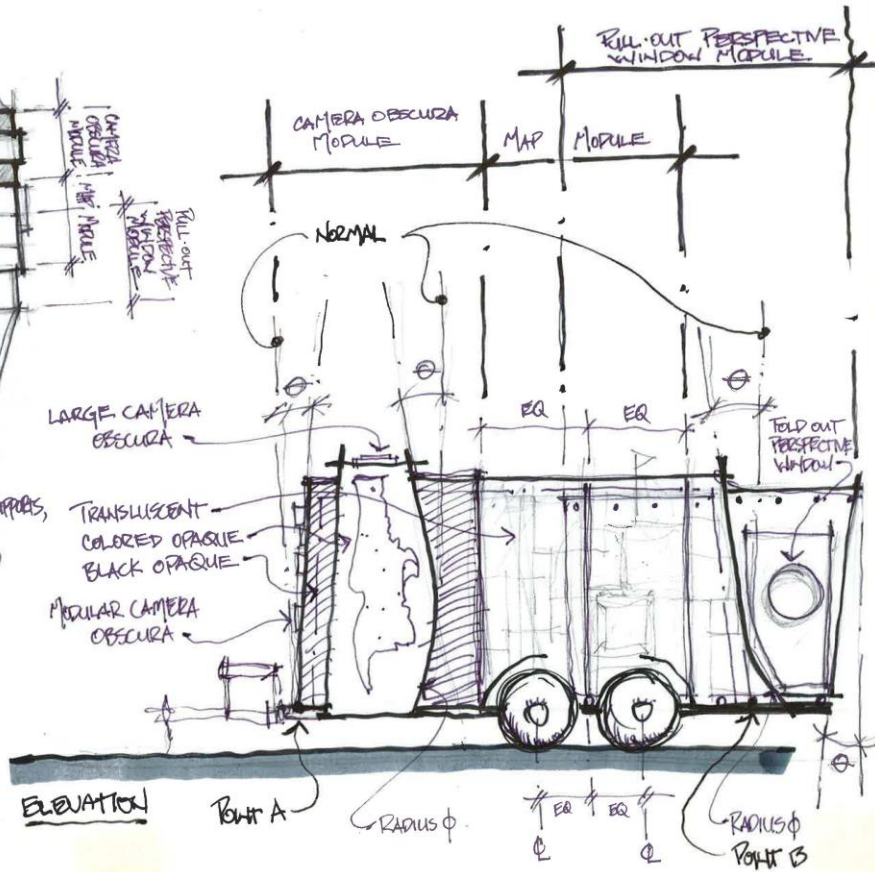 PULL-OUT PERSPECTIVE
WINDOW MODULE
CAMERA OBSCURA
MODULE
MAP MODULE
CAMERA
OBSCURA
MODULE
MAP MODULE
PULL-OUT
PERSPECTIVE
WINDOW
MODULE
NORMAL
Θ
Θ
Θ
LARGE CAMERA
OBSCURA
EQ
EQ
FOLD OUT
PERSPECTIVE
WINDOW
TRANSLUSCENT
COLORED OPAQUE
BLACK OPAQUE
MODULAR CAMERA
OBSCURA
Θ
ELEVATION
POINT A
RADIUS φ
EQ
EQ
℄
℄
RADIUS φ
POINT B